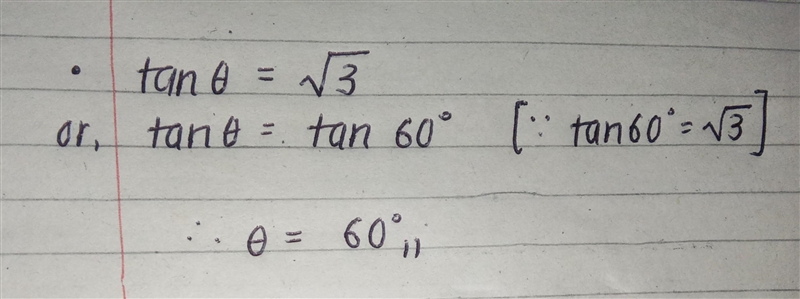 • tan θ = √3
or, tan θ = tan 60° [∵ tan 60° = √3]
∴ θ = 60°,,